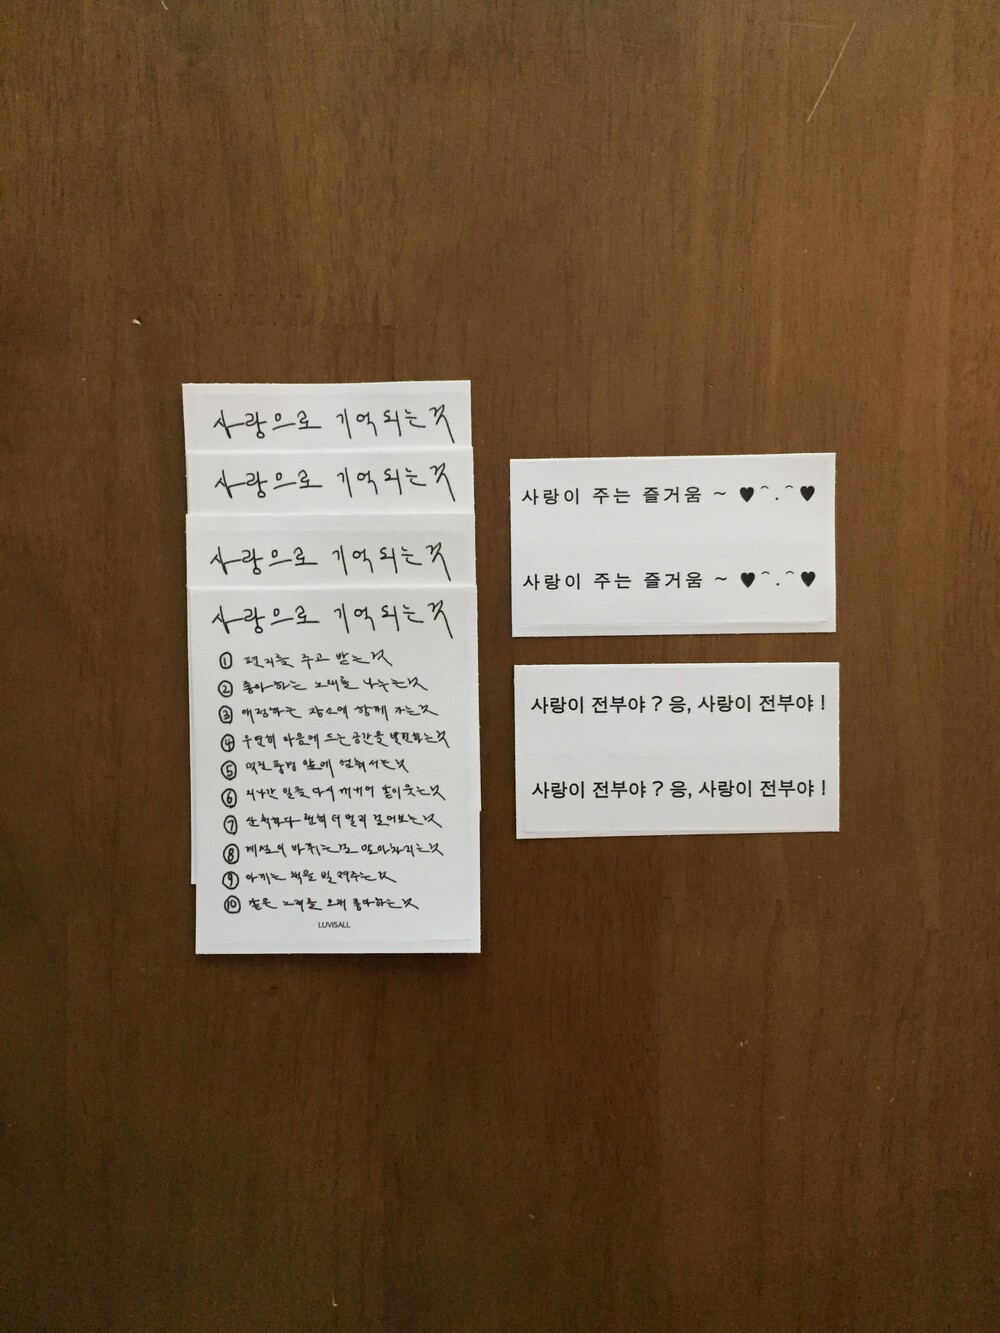 사랑으로 기억되는 것
사랑으로 기억되는 것
사랑으로 기억되는 것
사랑으로 기억되는 것
① 편지를 주고 받는 것
② 좋아하는 노래를 나누는 것
③ 애정하는 장소에 함께 가는 것
④ 우연히 마음에 드는 공간을 발견하는 것
⑤ 멋진 풍경 앞에 멈춰서는 것
⑥ 지나간 일을 다시 꺼내어 같이 웃는 것
⑦ 산책하다 괜히 더 멀리 걸어보는 것
⑧ 계절이 바뀌는 걸 알아차리는 것
⑨ 아끼는 책을 빌려주는 것
⑩ 같은 노래를 오래 좋아하는 것
LUVISALL
사랑이 주는 즐거움 ~ ♥ᄒ.ᄒ♥
사랑이 주는 즐거움 ~ ♥ᄒ.ᄒ♥
사랑이 전부야 ? 응, 사랑이 전부야 !
사랑이 전부야 ? 응, 사랑이 전부야 !